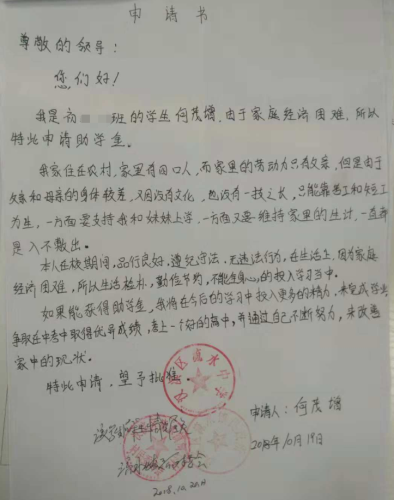 申请书
尊敬的领导：
您们好！
我是初 班的学生何茂增，由于家庭经济困难，所以
特此申请助学金。
我家住在农村，家里有四口人，而家里的劳动力只有父亲，但是由于
父亲和母亲的身体较差，又因没有文化，也没有一技之长，只能靠卖工和短工
为生，一方面要支持我和妹妹上学，一方面又要维持家里的生计，一直都
是入不敷出。
本人在校期间，品行良好，遵纪守法，无违法行为，在生活上，因为家庭
经济困难，所以生活简朴，勤俭节约，不能全身心的投入学习中。
如果能获得助学金，我将在今后的学习中投入更多的精力，来完成学业
争取在中考中取得优异成绩，考上一个好的高中，并通过自己不断努力，来改善
家中的现状。
特此申请，望予批准。
申请人：何茂增
2018年10月19日
2018.10.20